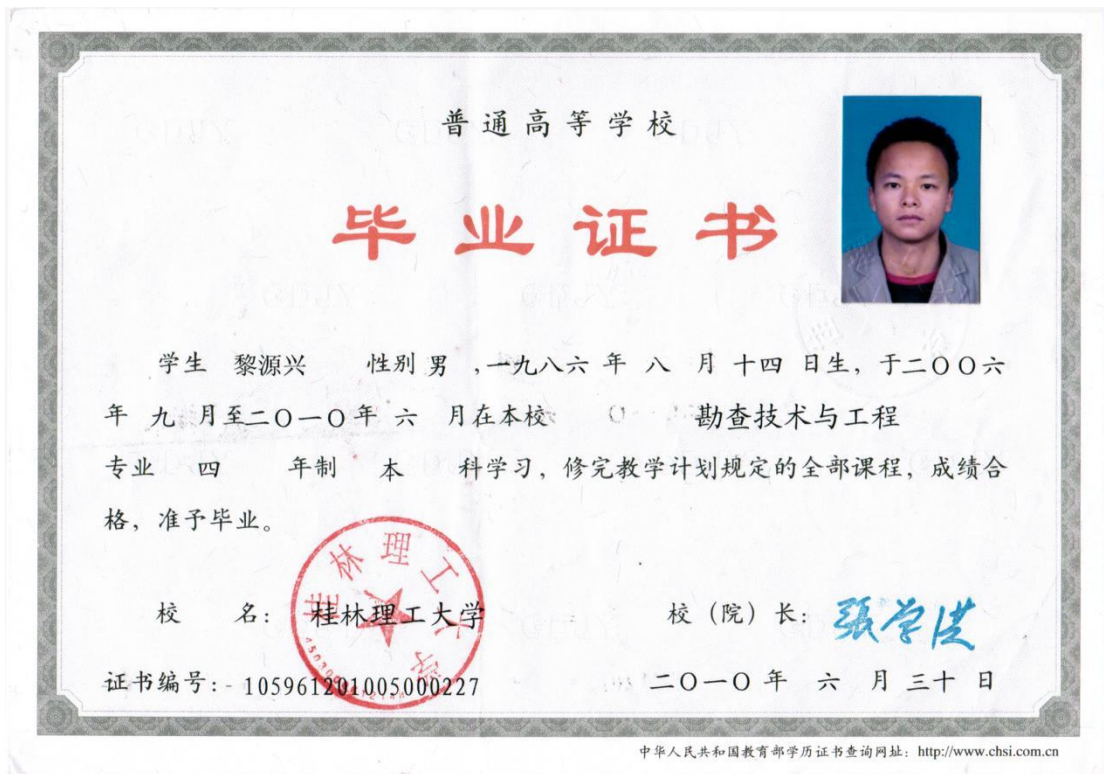 普通高等学校
毕业证书
学生 黎源兴 性别 男 ,一九八六 年 八 月 十四 日生，于二〇〇六
年 九 月至二〇一〇年 六 月在本校 勘查技术与工程
专业 四 年制 本 科学习，修完教学计划规定的全部课程，成绩合
格，准予毕业。
桂林理工大学
校 名： 桂林理工大学 校（院）长： 張学洪
证书编号：105961201005000227 二〇一〇 年 六 月 三十 日
中华人民共和国教育部学历证书查询网址：http://www.chsi.com.cn